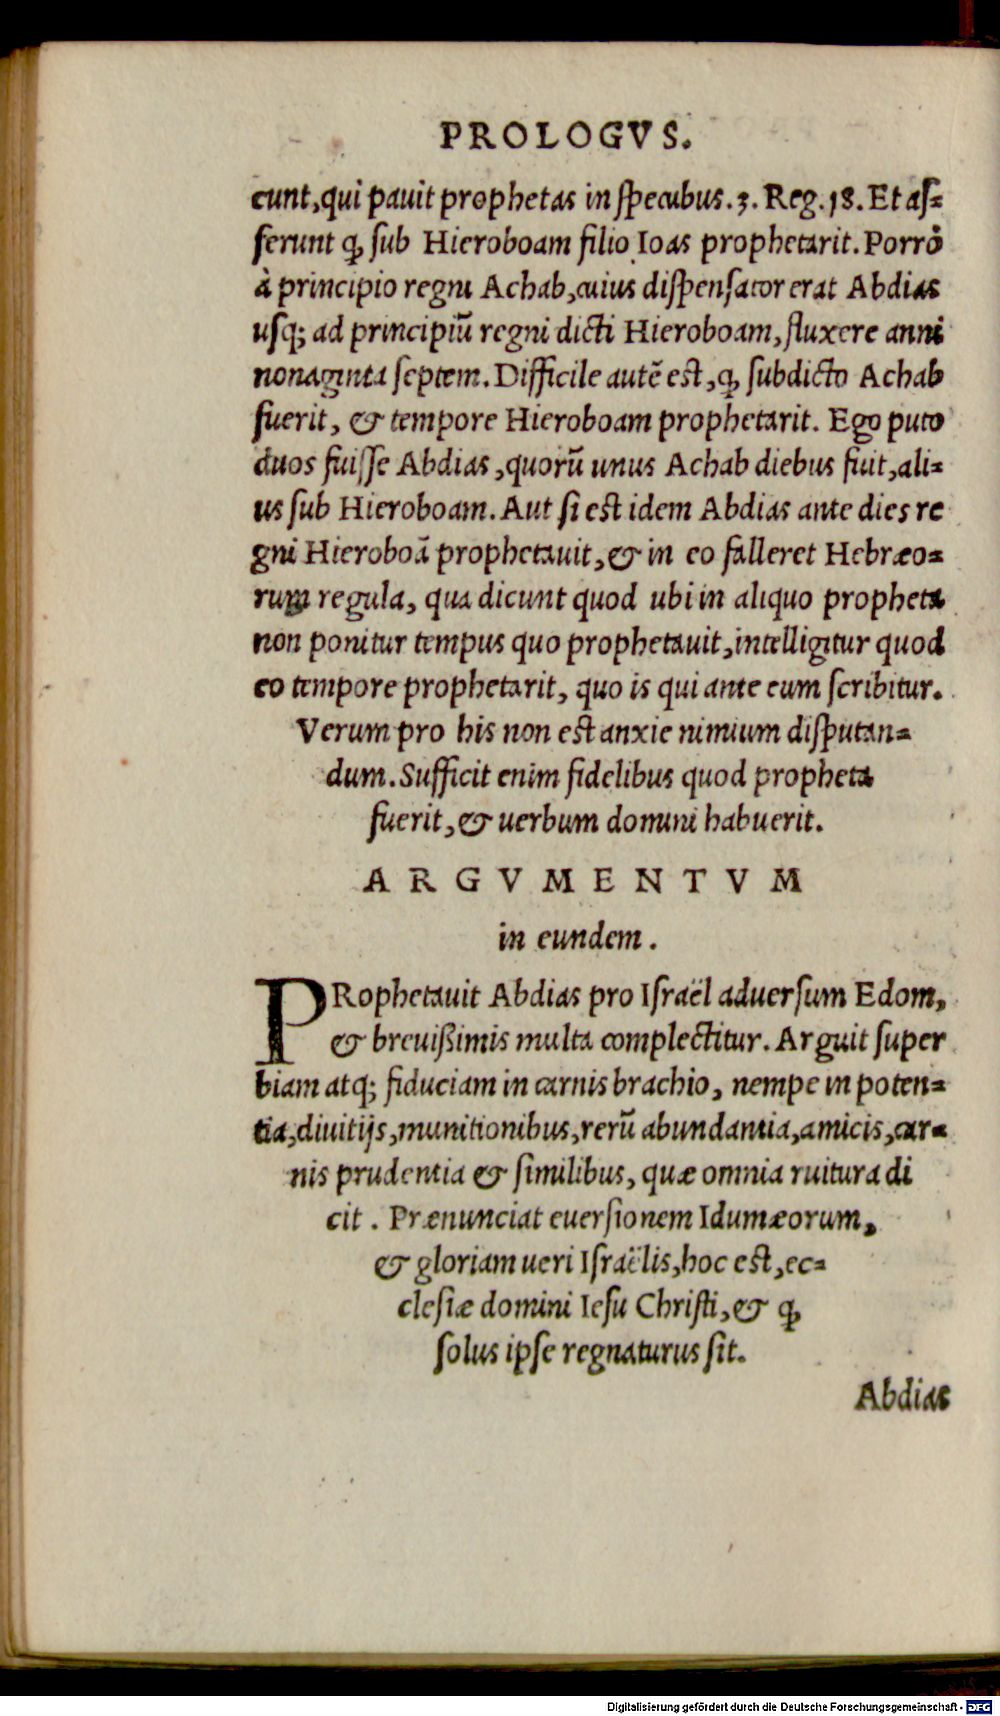 PROLOGVS.
cunt,qui pauit prophetas in ſpecubus.3.Reg.18.Et aſ=
ſerunt ꝙ ſub Hieroboam filio Ioas prophetarit.Porrò
à principio regni Achab,cuius diſpenſator erat Abdias
uſq; ad principiũ regni dicti Hieroboam,fluxere anni
nonaginta ſeptem.Difficile autẽ eſt,ꝙ ſubdicto Achab
fuerit, & tempore Hieroboam prophetarit. Ego puto
duos fuiſſe Abdias,quorũ unus Achab diebus fuit,ali=
us ſub Hieroboam.Aut ſi eſt idem Abdias ante dies re
gni Hieroboã prophetauit,& in eo falleret Hebræo=
rum regula, qua dicunt quod ubi in aliquo propheta
non ponitur tempus quo prophetauit,intelligitur quod
eo tempore prophetarit, quo is qui ante eum ſcribitur.
Verum pro his non eſt anxie nimium diſputan=
dum.Sufficit enim fidelibus quod propheta
fuerit,& uerbum domini habuerit.
ARGVMENTVM
in eundem.
PRophetauit Abdias pro Iſraël aduerſum Edom,
& breuißimis multa complectitur. Arguit ſuper
biam atq; fiduciam in carnis brachio, nempe in poten=
tia,diuitijs,munitionibus,rerũ abundantia,amicis,car=
nis prudentia & ſimilibus, quæ omnia ruitura di
cit. Prænunciat euerſionem Idumæorum,
& gloriam ueri Iſraëlis,hoc eſt,ec=
cleſiæ domini Ieſu Chriſti,& ꝙ
ſolus ipſe regnaturus ſit.
Abdias
Digitalisierung gefördert durch die Deutsche Forschungsgemeinschaft - DFG